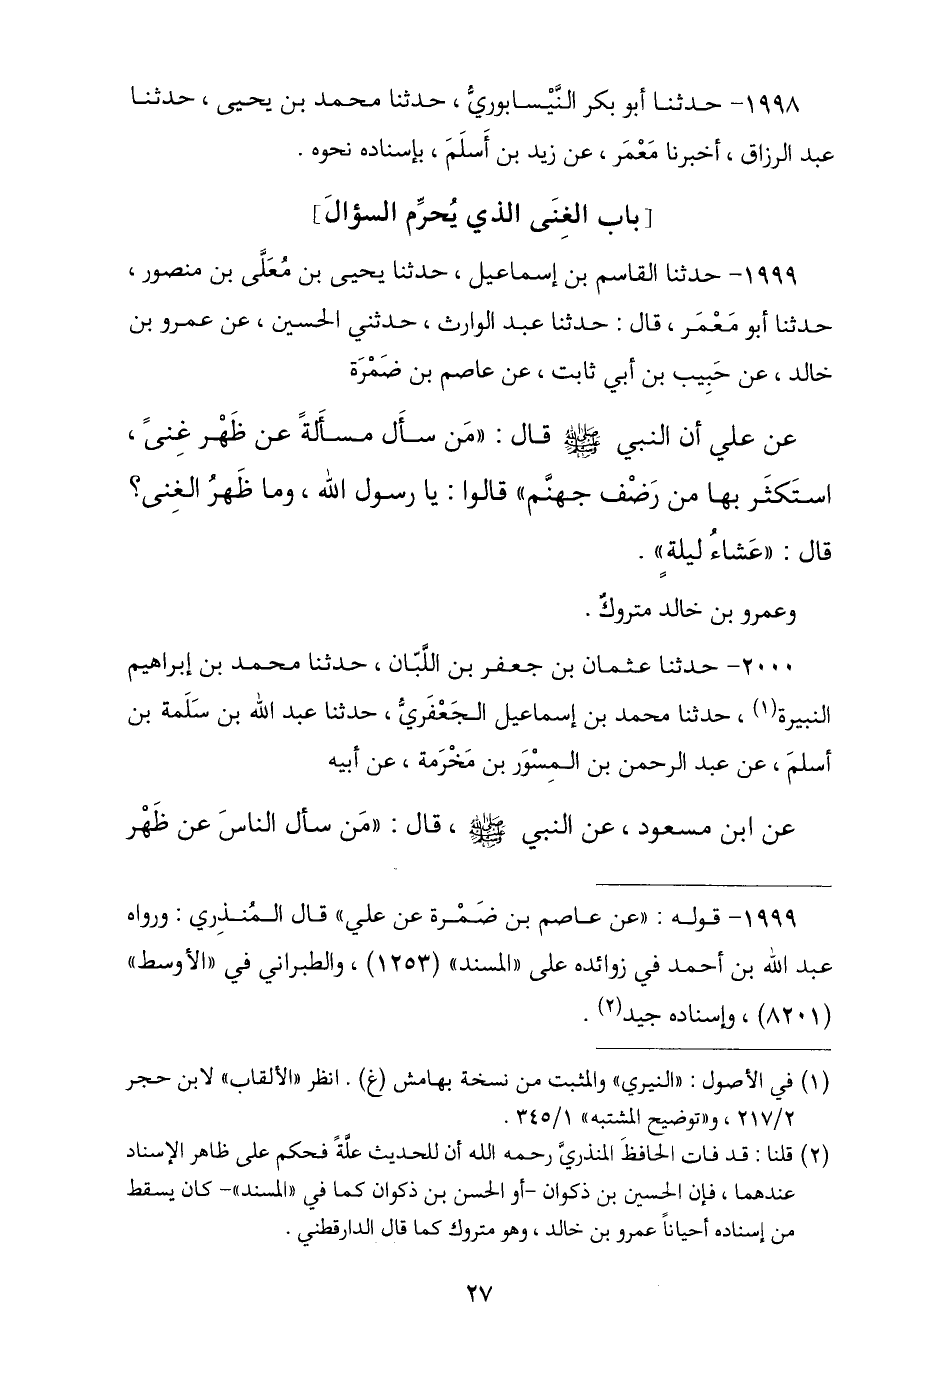 ١٩٩٨- حدثنا أبو بكر النَّيْسابوريُّ ، حدثنا محمد بن يحيى ، حدثنا
عبد الرزاق ، أخبرنا مَعْمَر ، عن زيد بن أَسلَمَ ، بإسناده نحوه .
[باب الغِنَى الذي يُحرِّم السؤالَ]
١٩٩٩- حدثنا القاسم بن إسماعيل ، حدثنا يحيى بن مُعَلَّى بن منصور ،
حدثنا أبو مَعْمَر ، قال : حدثنا عبد الوارث ، حدثني الحسين ، عن عمرو بن
خالد ، عن حَبِيب بن أبي ثابت ، عن عاصم بن ضَمْرَة
عن علي أن النبي ﷺ قال : «مَن سأَل مسأَلةً عن ظَهْر غِنىً ،
استَكثَر بها من رَضْف جهنَّم» قالوا : يا رسول الله ، وما ظَهرُ الغِنى؟
قال : «عَشاءُ ليلةٍ» .
وعمرو بن خالد متروكٌ .
٢٠٠٠- حدثنا عثمان بن جعفر بن اللَّبّان ، حدثنا محمد بن إبراهيم
النبيرة(١) ، حدثنا محمد بن إسماعيل الجَعْفَريُّ ، حدثنا عبد الله بن سَلَمة بن
أسلمَ ، عن عبد الرحمن بن المِسْوَر بن مَخْرَمة ، عن أبيه
عن ابن مسعود ، عن النبي ﷺ ، قال : «مَن سأل الناسَ عن ظَهْر
١٩٩٩- قوله : «عن عاصم بن ضَمْرة عن علي» قال المُنذِري : ورواه
عبد الله بن أحمد في زوائده على «المسند» (١٢٥٣) ، والطبراني في «الأوسط»
(٨٢٠١) ، وإسناده جيد(٢) .
(١) في الأصول : «النيري» والمثبت من نسخة بهامش (غ) . انظر «الألقاب» لابن حجر
٢١٧/٢ ، و«توضيح المشتبه» ٣٤٥/١ .
(٢) قلنا : قد فات الحافظَ المنذريَّ رحمه الله أن للحديث علَّةً فحكم على ظاهر الإسناد
عندهما ، فإن الحسين بن ذكوان -أو الحسن بن ذكوان كما في «المسند»- كان يسقط
من إسناده أحياناً عمرو بن خالد ، وهو متروك كما قال الدارقطني .
٢٧